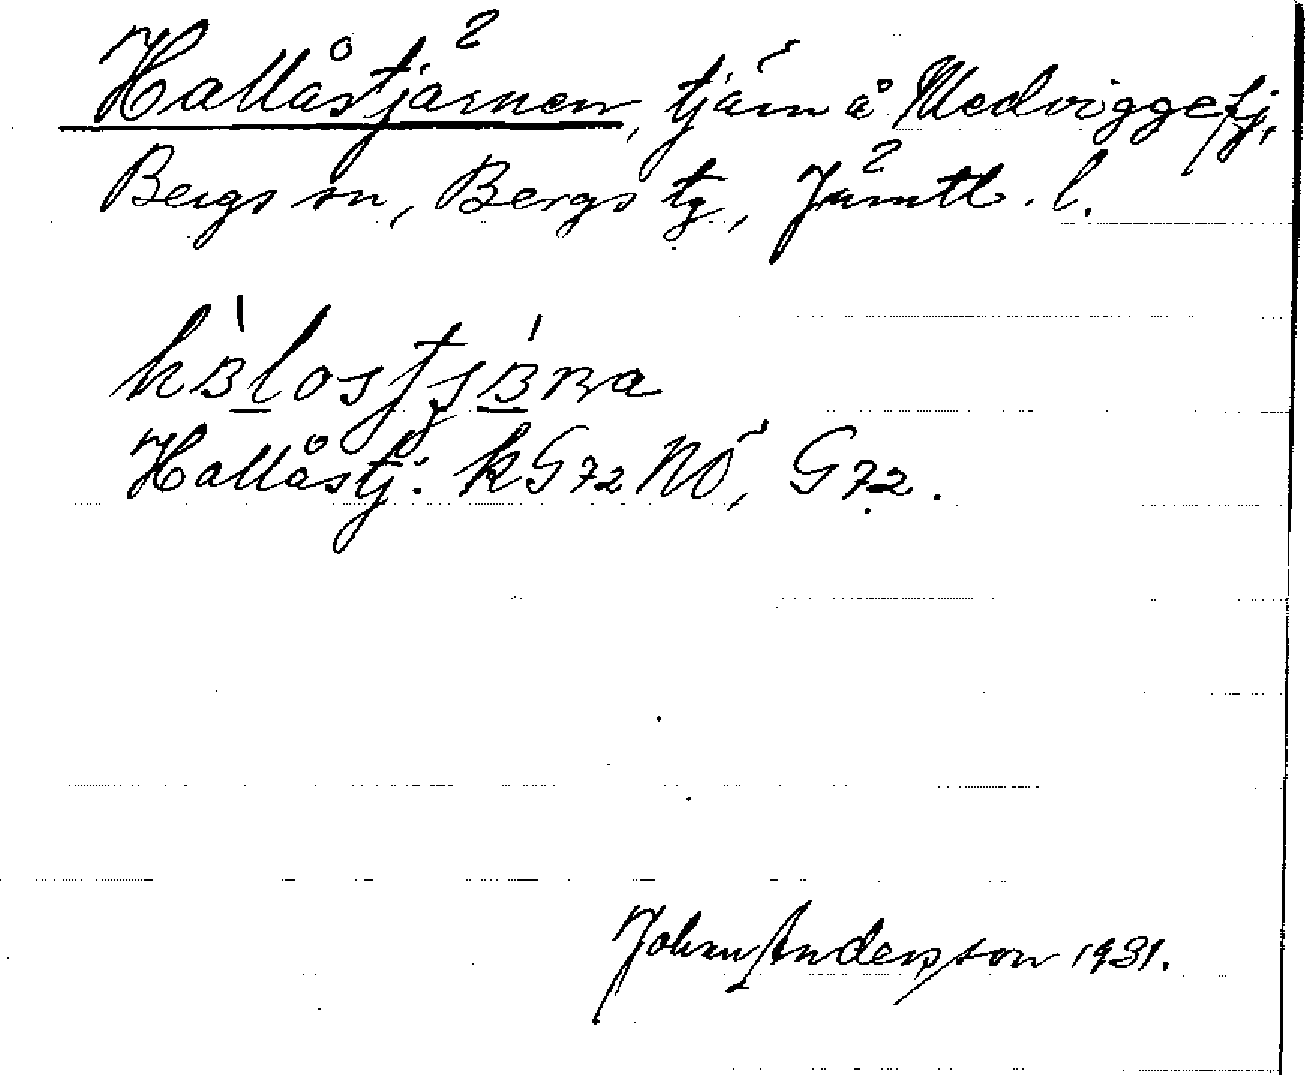 Hallåstjärnen, tjärn å Medviggefj,
Bergs sn, Bergs tg, Jämtl. l.
Hallåstj: kG72NÖ, G72.
Johan Andersson 1931.